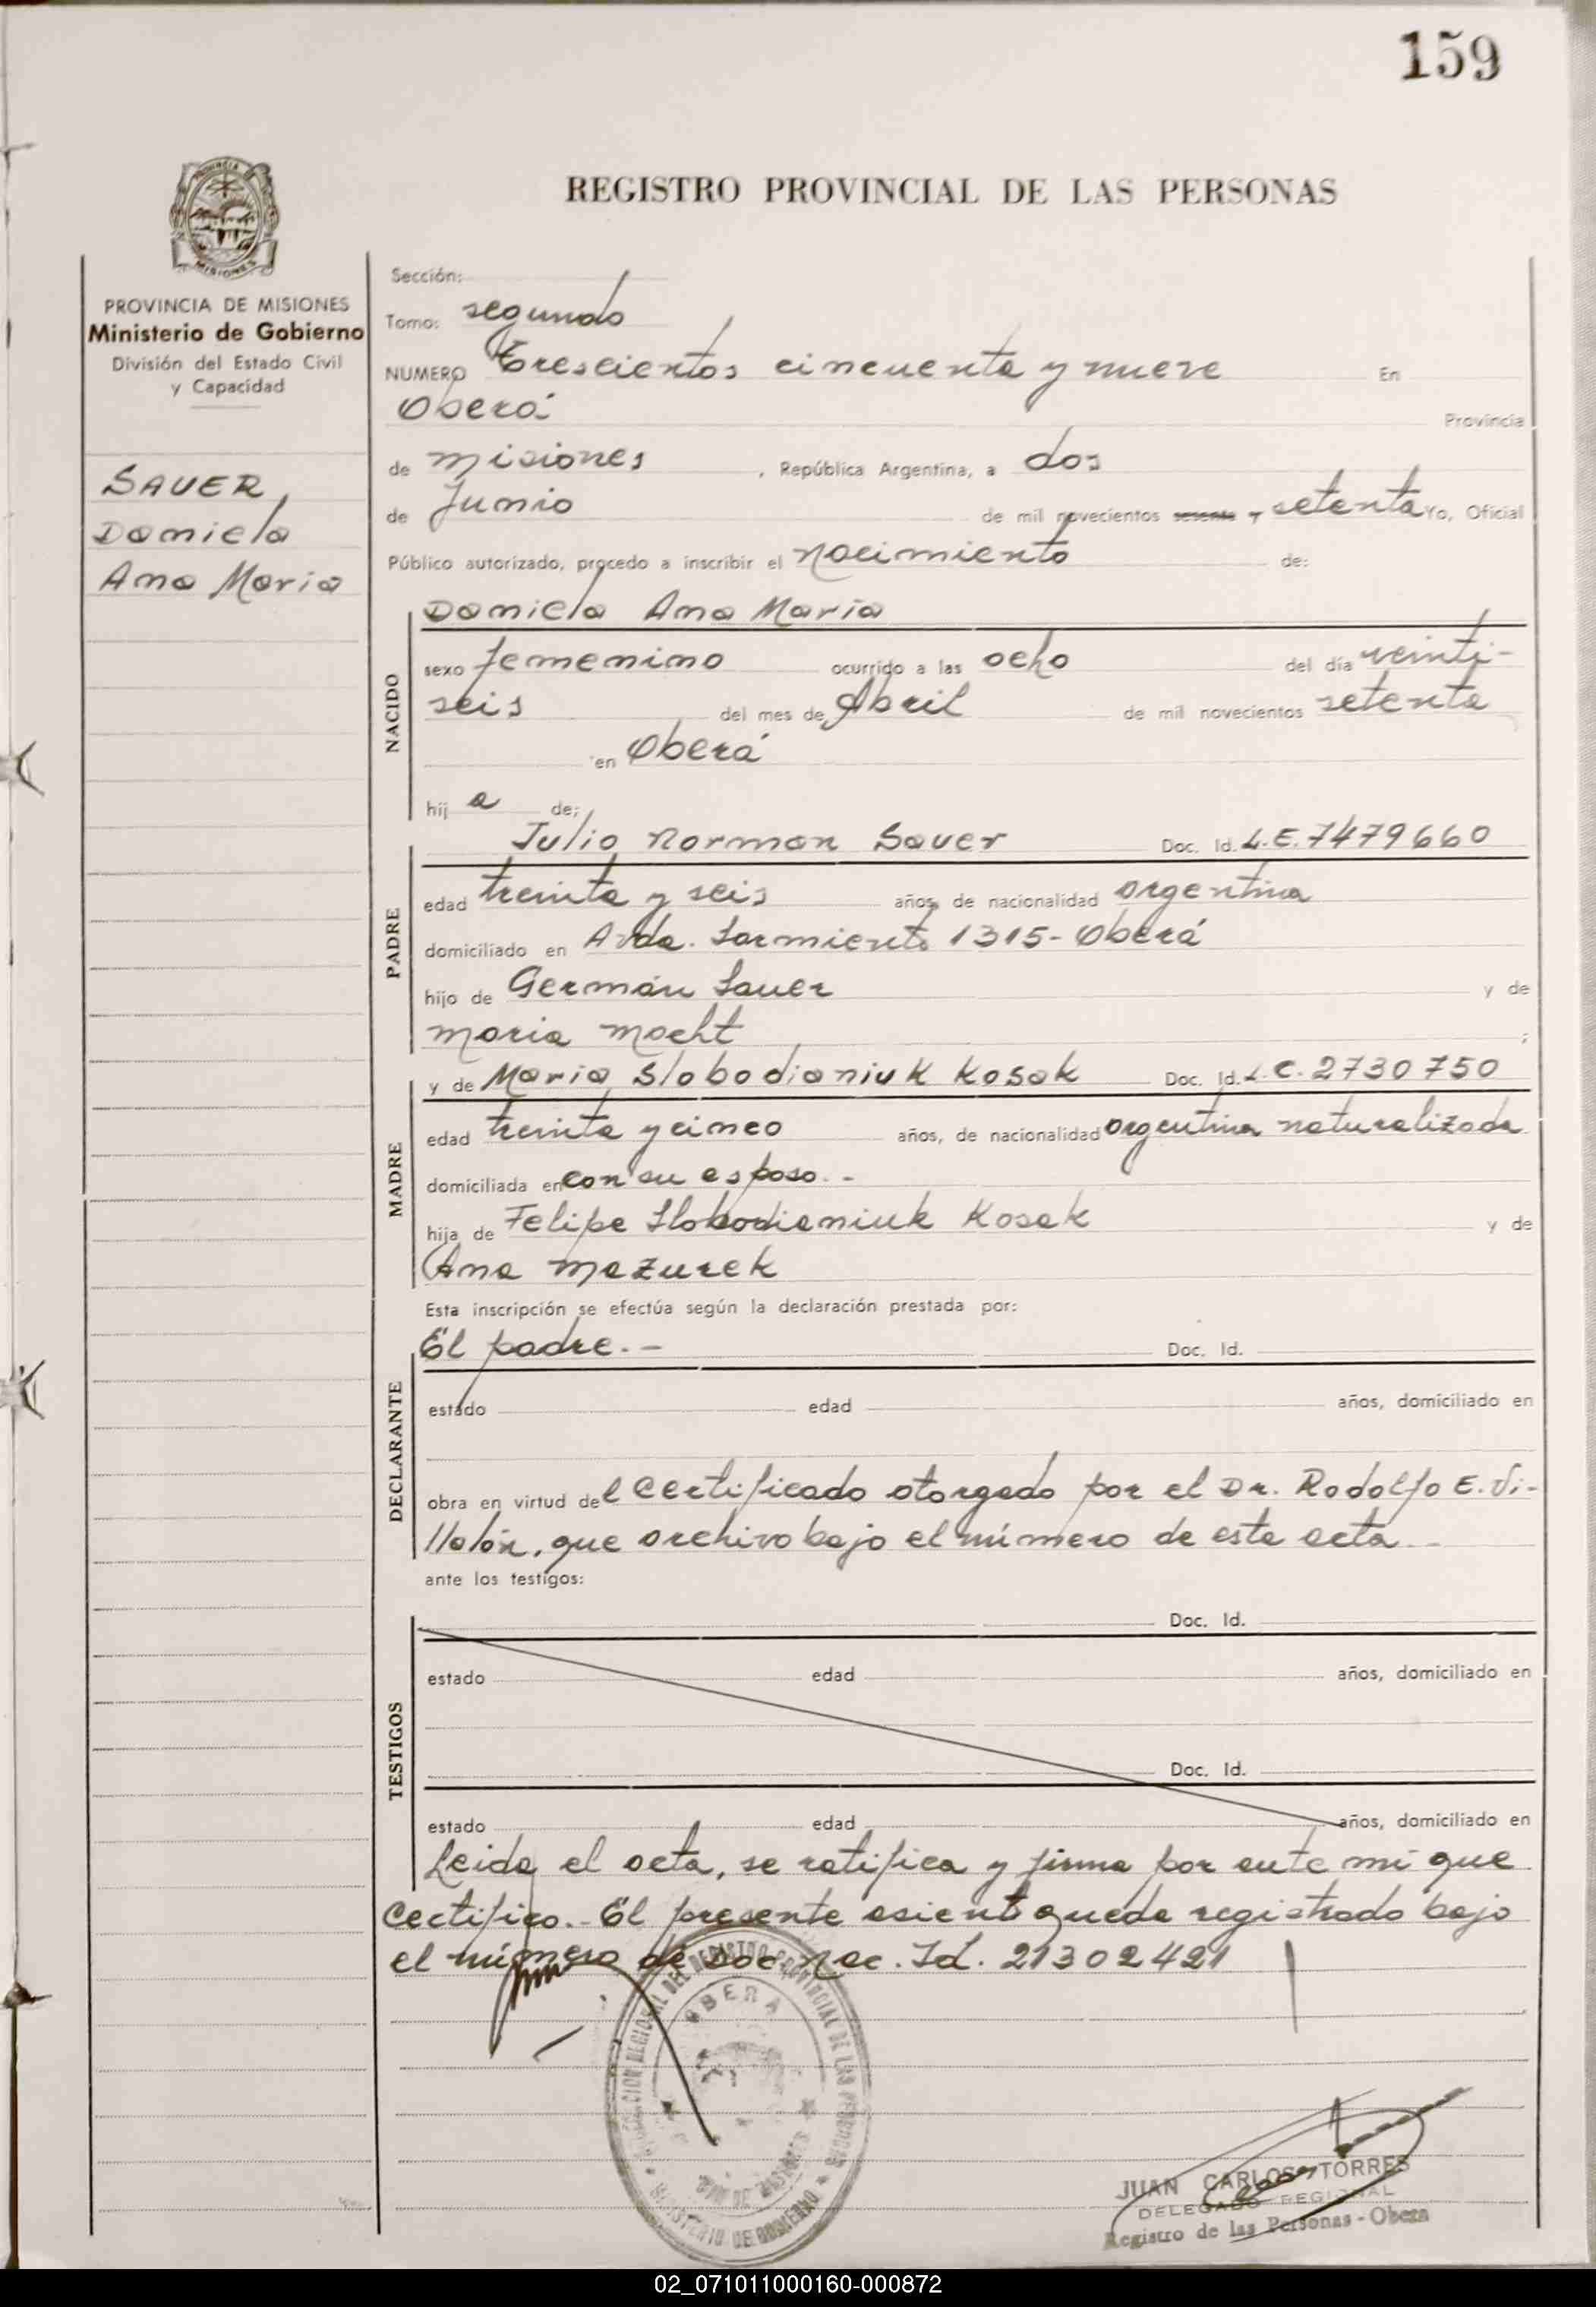 159
REGISTRO PROVINCIAL DE LAS PERSONAS
PROVINCIA DE MISIONES
Ministerio de Gobierno
División del Estado Civil
y Capacidad
SAUER,
Daniela
Ana María
Sección:
Tomo: segundo
NUMERO Trescientos cincuenta y nueve En
Oberá Provincia
de misiones , República Argentina, a dos
de Junio de mil novecientos sesenta y setenta Yo, Oficial
Público autorizado, procedo a inscribir el nacimiento de:
NACIDO
Daniela Ana María
sexo femenino ocurrido a las ocho del día veinti-
seis del mes de Abril de mil novecientos setenta
en Oberá
hij a de;
PADRE
Julio Norman Sauer Doc. Id. L.E. 7479660
edad treinta y seis años, de nacionalidad argentina
domiciliado en Avda. Sarmiento 1315 - Oberá
hijo de Germán Sauer y de
maria Mocht ;
MADRE
y de María Slobodianiuk Kosak Doc. Id. L.C. 2730750
edad treinta y cinco años, de nacionalidad argentina naturalizada
domiciliada en con su esposo. -
hija de Felipe Slobodianiuk Kosak y de
Ana Mazurek
Esta inscripción se efectúa según la declaración prestada por:
DECLARANTE
El padre. - Doc. Id.
estado edad años, domiciliado en
obra en virtud del certificado otorgado por el Dr. Rodolfo E. Vi-
llalón, que archivo bajo el número de esta acta
ante los testigos:
TESTIGOS
Doc. Id.
estado edad años, domiciliado en
Doc. Id.
estado edad años, domiciliado en
Leida el acta, se ratifica y firma por ante mí que
certifico. - El presente asiento queda registrado bajo
el número de Doc. Nac. Id. 21302421
OBERA
MINISTERIO DE GOBIERNO
JUAN CARLOS TORRES
DELEGADO REGIONAL
Registro de las Personas - Obera
02_071011000160-000872